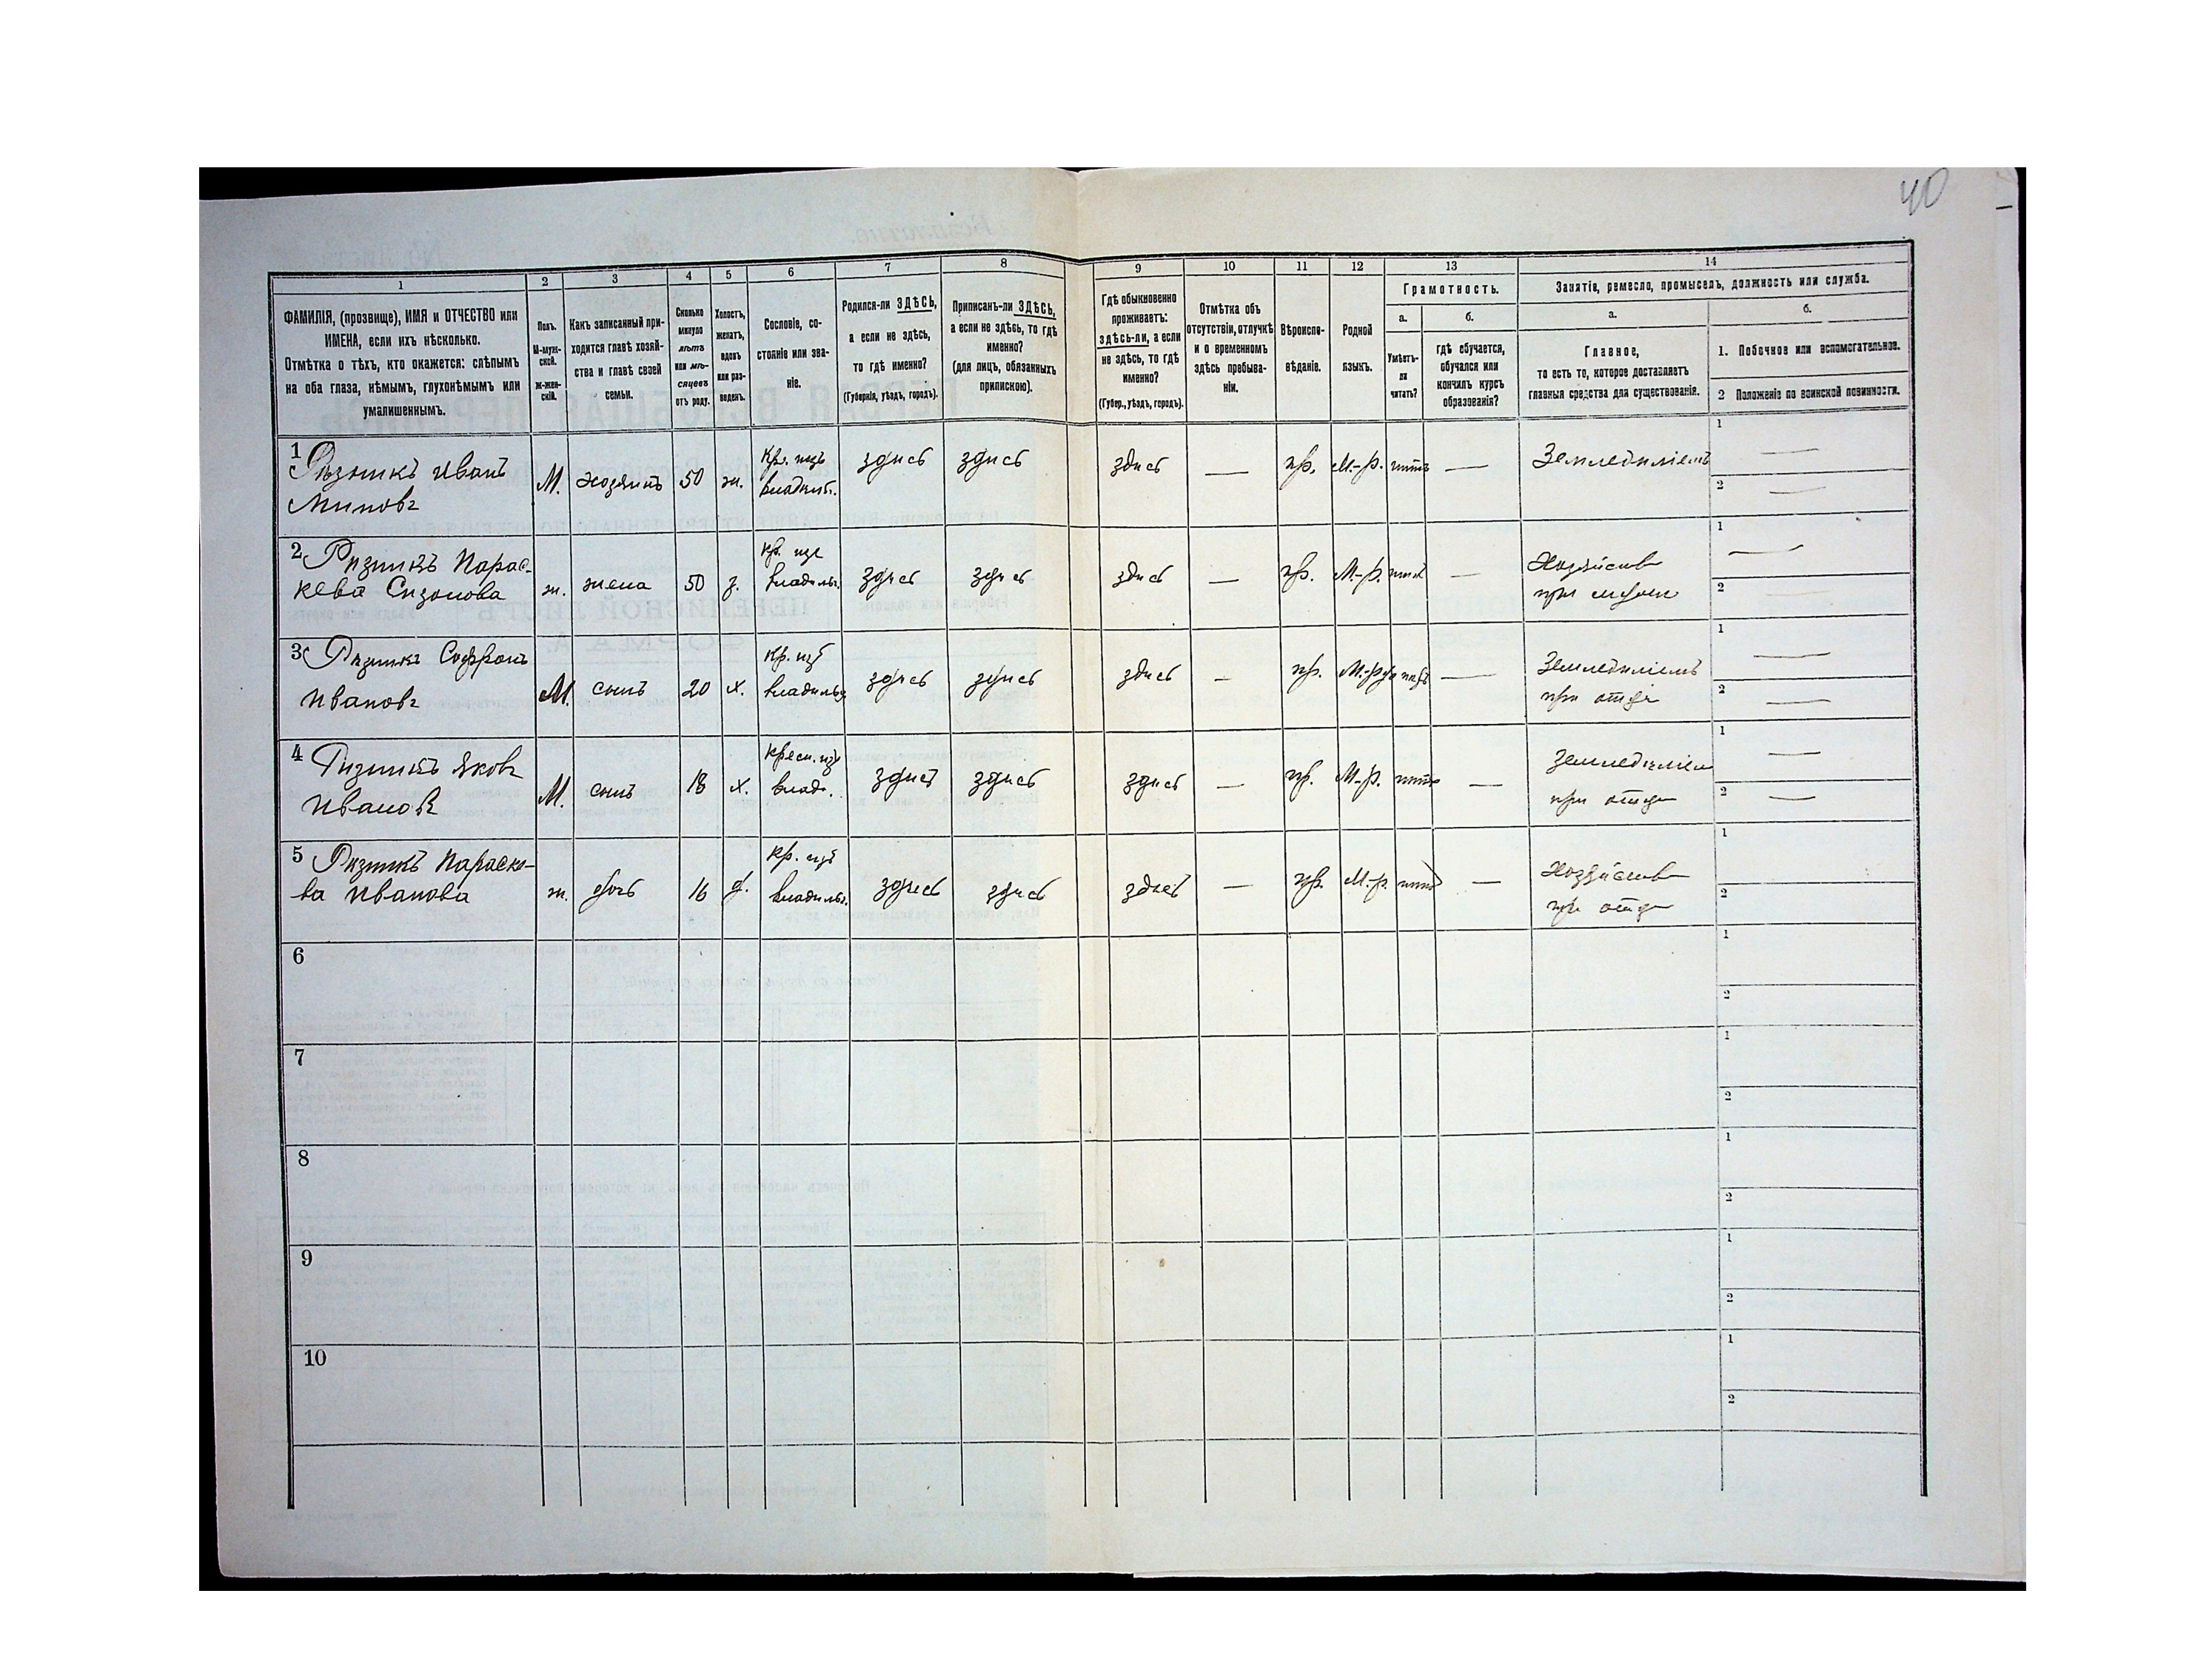 40
1 2 3 4 5 6 7 8 9 10 11 12 13 14
ФАМИЛІЯ, (прозвище), ИМЯ и ОТЧЕСТВО или
ИМЕНА, если ихъ нѣсколько.
Отмѣтка о тѣхъ, кто окажется: слѣпымъ
на оба глаза, нѣмымъ, глухонѣмымъ или
умалишеннымъ.
Полъ.
М-муж-
ской.
Ж-жен-
скій.
Какъ записанный при-
ходится главѣ хозяй-
ства и главѣ своей
семьи.
Сколько
минуло
лѣтъ
или мѣ-
сяцевъ
отъ роду.
Холостъ,
женатъ,
вдовъ
или раз-
веденъ.
Сословіе, со-
стояніе или зва-
ніе.
Родился-ли ЗДѢСЬ,
а если не здѣсь,
то гдѣ именно?
(Губернія, уѣздъ, городъ).
Приписанъ-ли ЗДѢСЬ,
а если не здѣсь, то гдѣ
именно?
(для лицъ, обязанныхъ
припискою).
Гдѣ обыкновенно
проживаетъ:
здѣсь-ли, а если
не здѣсь, то гдѣ
именно?
(Губер., уѣздъ, городъ).
Отмѣтка объ
отсутствіи, отлучкѣ
и о временномъ
здѣсь пребыва-
ніи.
Вѣроиспо-
вѣданіе.
Родной
языкъ.
Грамотность.
а.
Умѣетъ-
ли
читать?
б.
гдѣ обучается,
обучался или
кончилъ курсъ
образованія?
Занятіе, ремесло, промыселъ, должность или служба.
а.
Главное,
то есть то, которое доставляетъ
главныя средства для существованія.
б.
1. Побочное или вспомогательное.
2 Положеніе по воинской повинности.
1 Иванъ
М. хозяинъ 50 ж. здись здись здись — пр. М.-р. — 1 —
2 —
2 Ризникъ Парас-
кева Сизонова
ж. жена 50 з. здись здись здись — пр. М.-р. — Хозяйство
при мужи
1 —
2
3 Ризникъ Софронъ
Ивановъ
М. сынъ 20 х. здись здись здись — пр. М.-р. —
при отци
1 —
2 —
4 Ризникъ Яковъ
Ивановъ
М. сынъ 18 х. здись здись здись — пр. М.-р. —
при отци
1 —
2 —
5 Ризникъ Параске-
ва Иванова
ж. дочь 16 д. здись здись здись — пр. М.-р. — Хозяйство
при отци
1
2
6 1
2
7 1
2
8 1
2
9 1
2
10 1
2